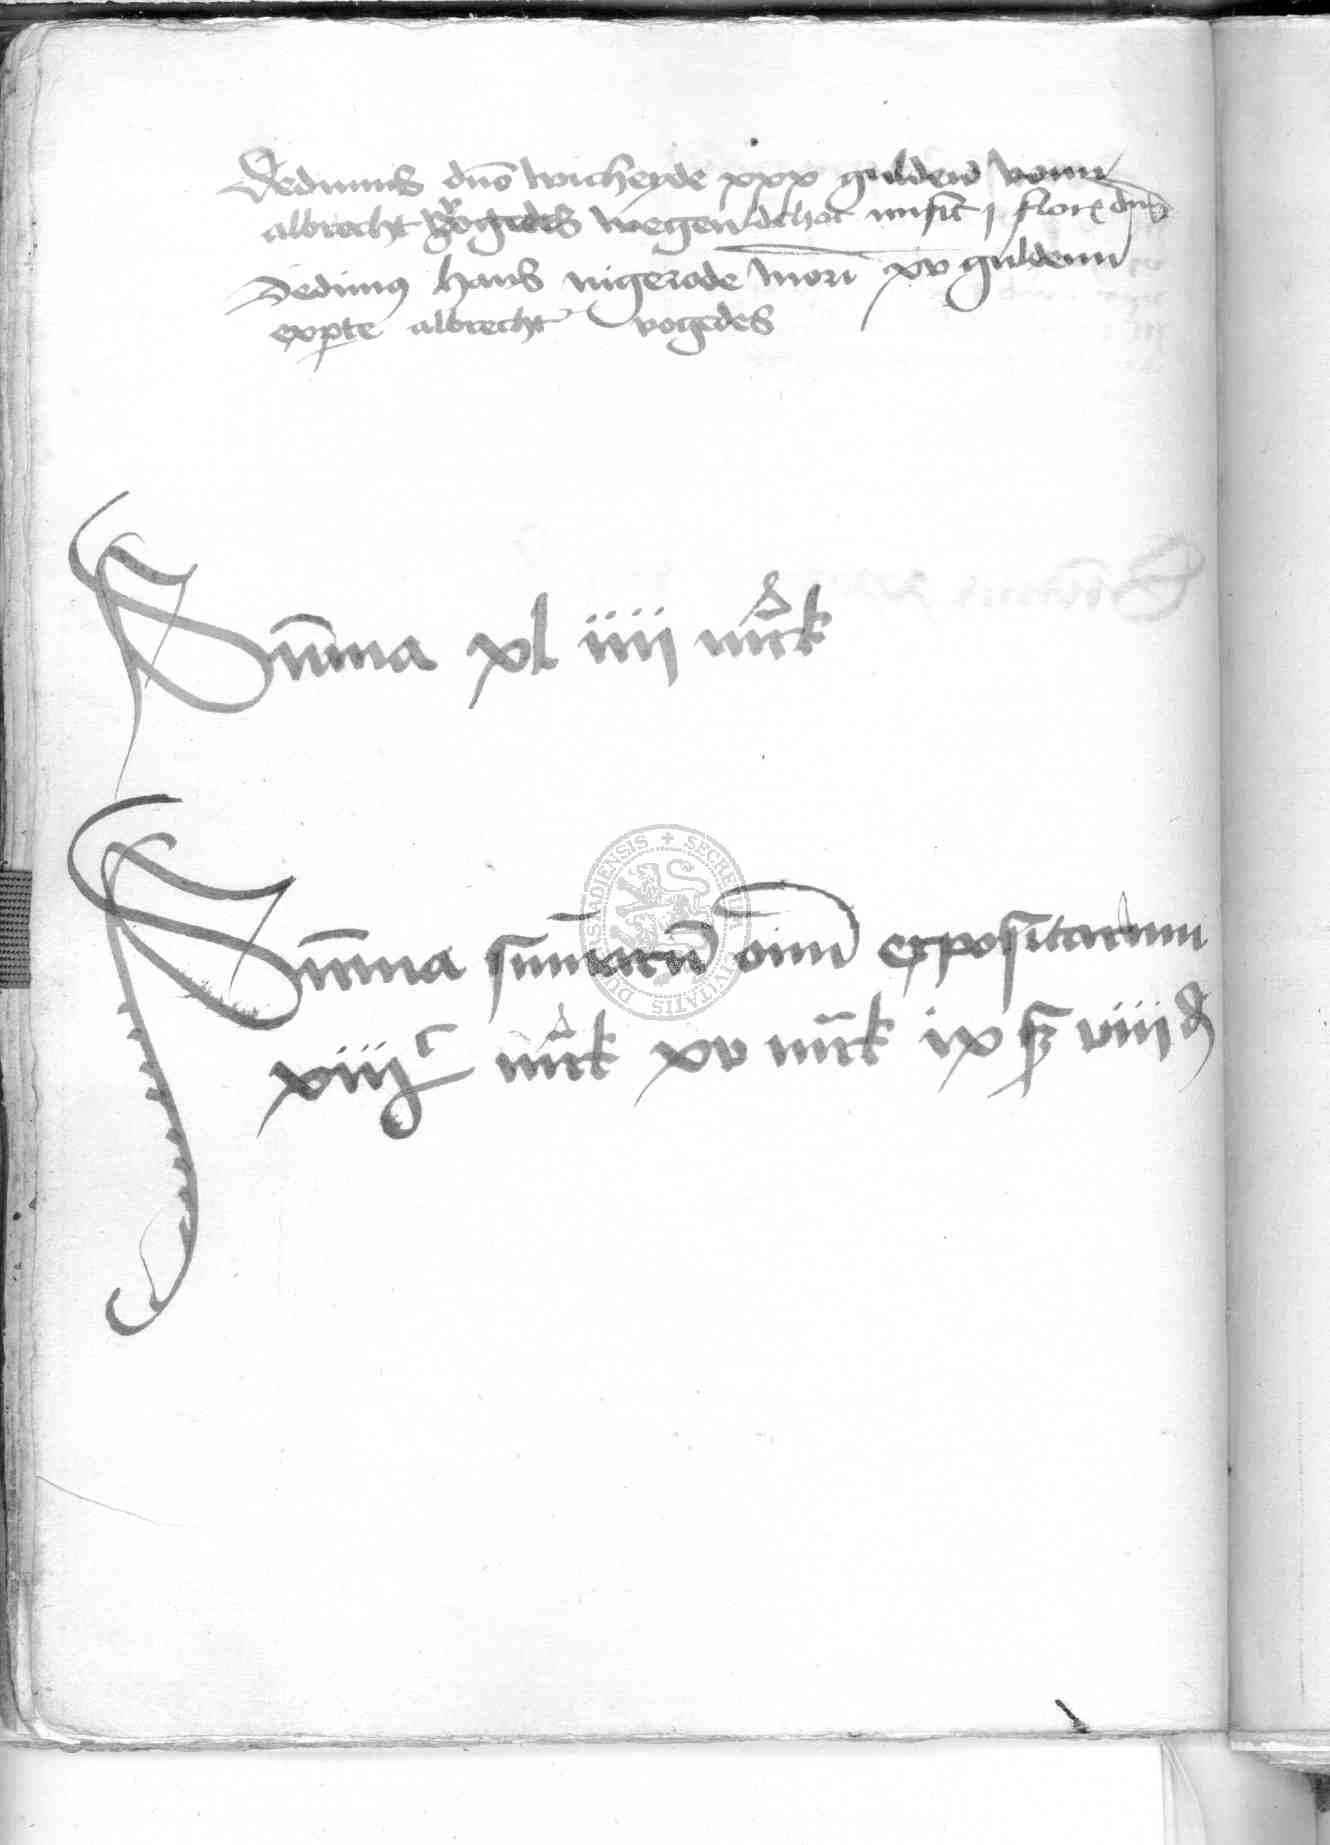 Dedimus dno wicherde xxx gulden vonn
albrecht vogedes wegen dehat misit j flor dns
Dedimus Hans nigerode mori xv guldenn
exparte albrecht vogedes
Summa xl iiii mrck
Summa summarum oim expositarum
xiiij c mrck xv mrck ix ß viiii d
DUDERSTADIENSIS + SECRETUM CIVITATIS